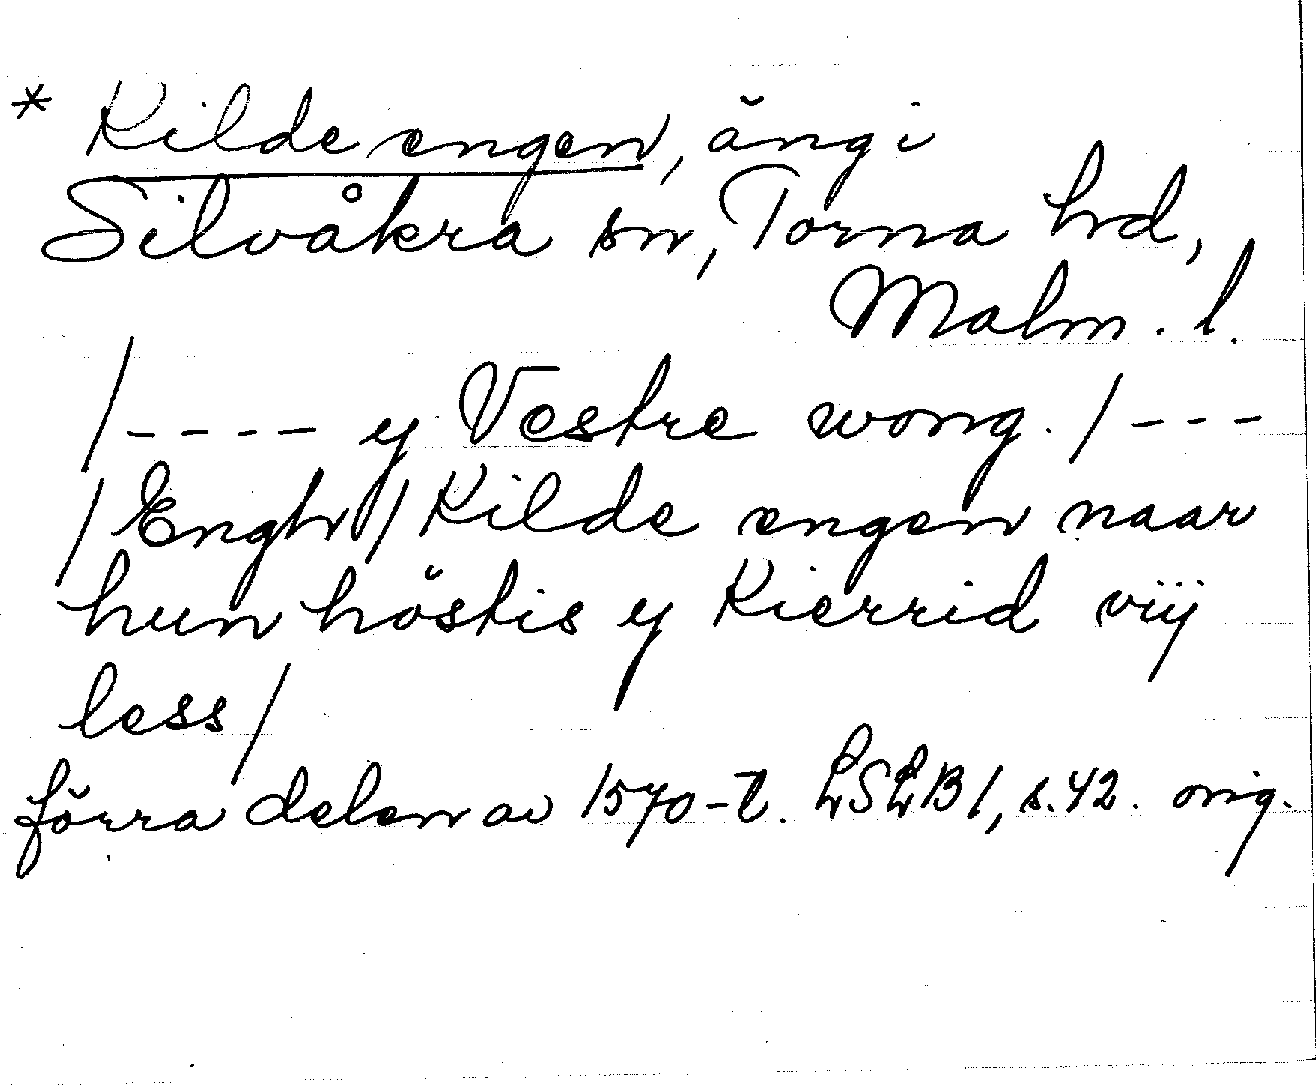 * Kilde engen, äng i
Silvåkra sn, Torna hd,
Malm. l.
/---- y Vestre wong. / ---
/ Engh / Kilde engen naar
hun höstis y Kierrid viij
less /
förra delen av 1570-t. LSLB 1, s. 42. orig.